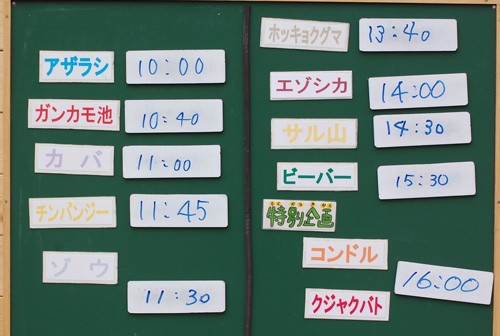 アザラシ 10:00
ガンカモ池 10:40
カバ 11:00
チンパンジー 11:45
ゾウ
11:30
ホッキョクグマ 13:40
エゾシカ 14:00
サル山 14:30
ビーバー 15:30
とくべつきかく
特別企画
コンドル
クジャクバト 16:00